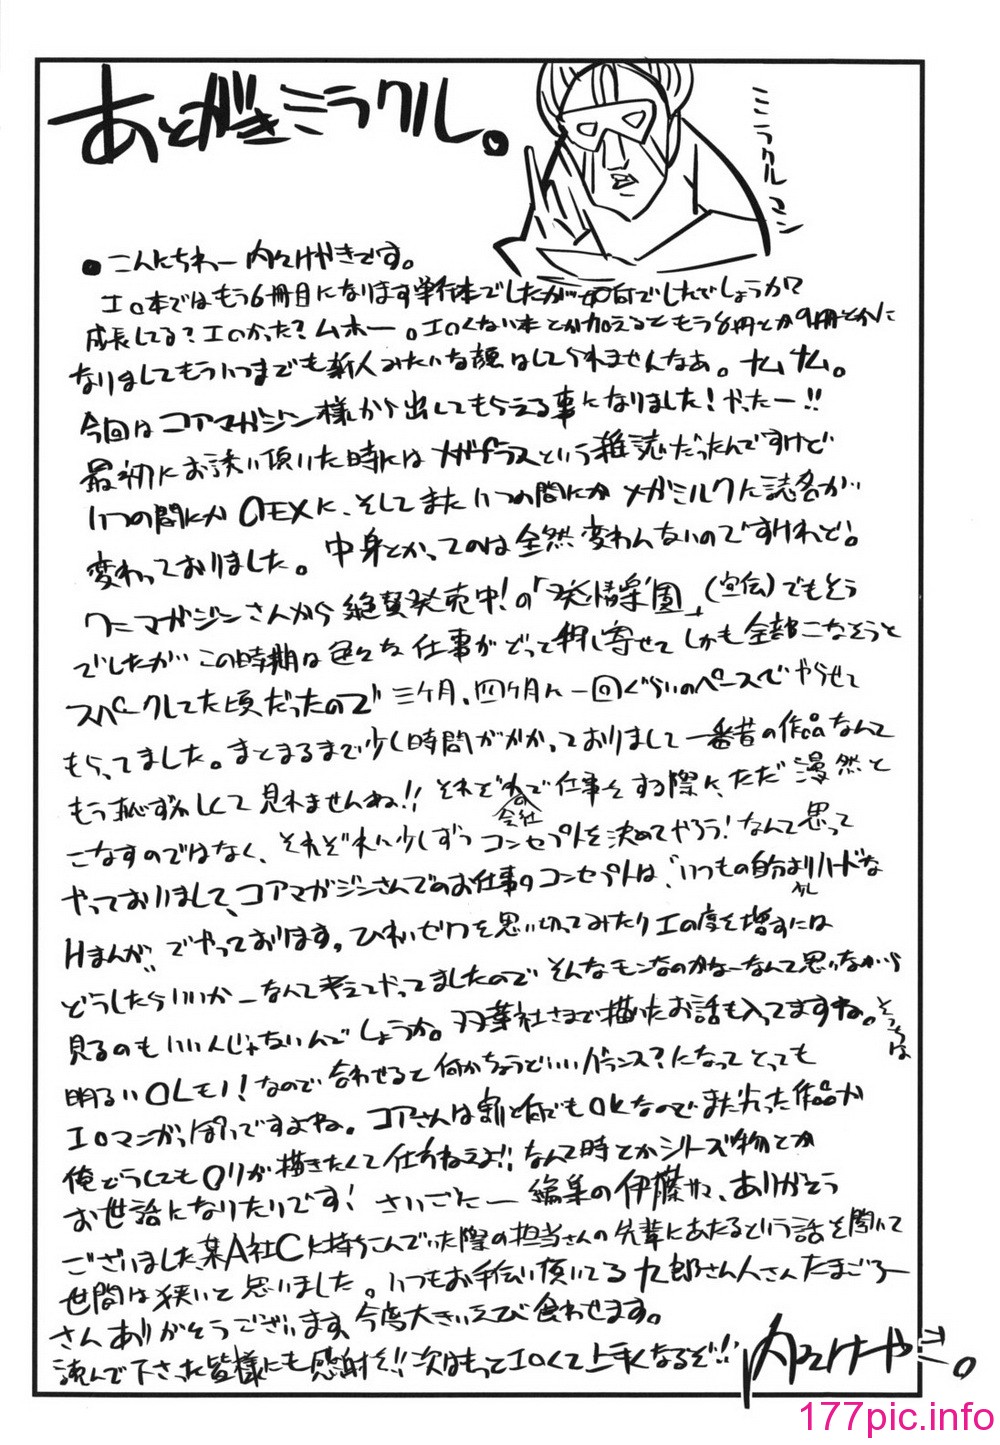 あとがきミラクル。
ミラクルマン
●こんにちわー内々けやきです。
エロ本ではもう6冊目になります単行本でしたが如何でしたでしょうか?
成長してる?エロかった?ムホー。エロくない本とか加えるともう8冊とか9冊とかに
なりましてもういつまでも新人みたいな顔はしてられませんなぁ。ナムナム。
今回はコアマガジン様から出してもらえる事になりました!やったー!!
最初にお誘い頂いた時にはメガプラスという雑誌だったんですけど
いつの間にかOEXに、そしてまたいつの間にかメガミルクに誌名が
変わっておりました。中身とかってのは全然変わんないのですけれど。
ワニマガジンさんから絶賛発売中!の「発情楽園」(宣伝)でもそう
でしたがこの時期は色々な仕事がどって押し寄せてしかも全部こなそうと
スパークしてた頃だったので三ヶ月、四ヶ月に一回ぐらいのペースでやらせて
もらってました。まとまるまで少し時間がかかっておりまして一番昔の作品なんて
もう恥ずかしくて見れませんね!!それぞれの会社で仕事をする際に、ただ漫然と
こなすのではなく、それぞれに少しずつコンセプトを決めてやろう!なんて思って
やっておりまして、コアマガジンさんでのお仕事のコンセプトは、"いつもの自分より少しハードな
Hまんが"でやっております。ひわいゼリフを思い切ってみたりエロ度を増すには
どうしたらいいかーなんて考えてやってましたのでそんなモンなのかなーなんて思いながら
見るのもいいんじゃないんでしょうか。双葉社さまで描いたお話も入ってますね。そっちは
明るいOLモノ!なので合わせると何かちょうどいいバランス?になってとっても
エロマンガっぽいですよね。コアさんは割と何でもOKなのでまた尖った作品か
俺どうしてもロリが描きたくて仕方ねえよ!!なんて時とかシリーズ物とか
お世話になりたいです!さいごにー編集の伊藤サマ、ありがとう
ございました某A社Cに持ちこんでいた際の担当さんの先輩にあたるという話を聞いて
世間は狭いと思いました。いつもお手伝い頂いてる九郎さん人さんたまごろー
さんありがとうございます、今度大きいえび食わせます。
読んで下さった皆様にも感謝を!!次はもってエロくて上手くなるぞ!!内々けやき。
177pic.info